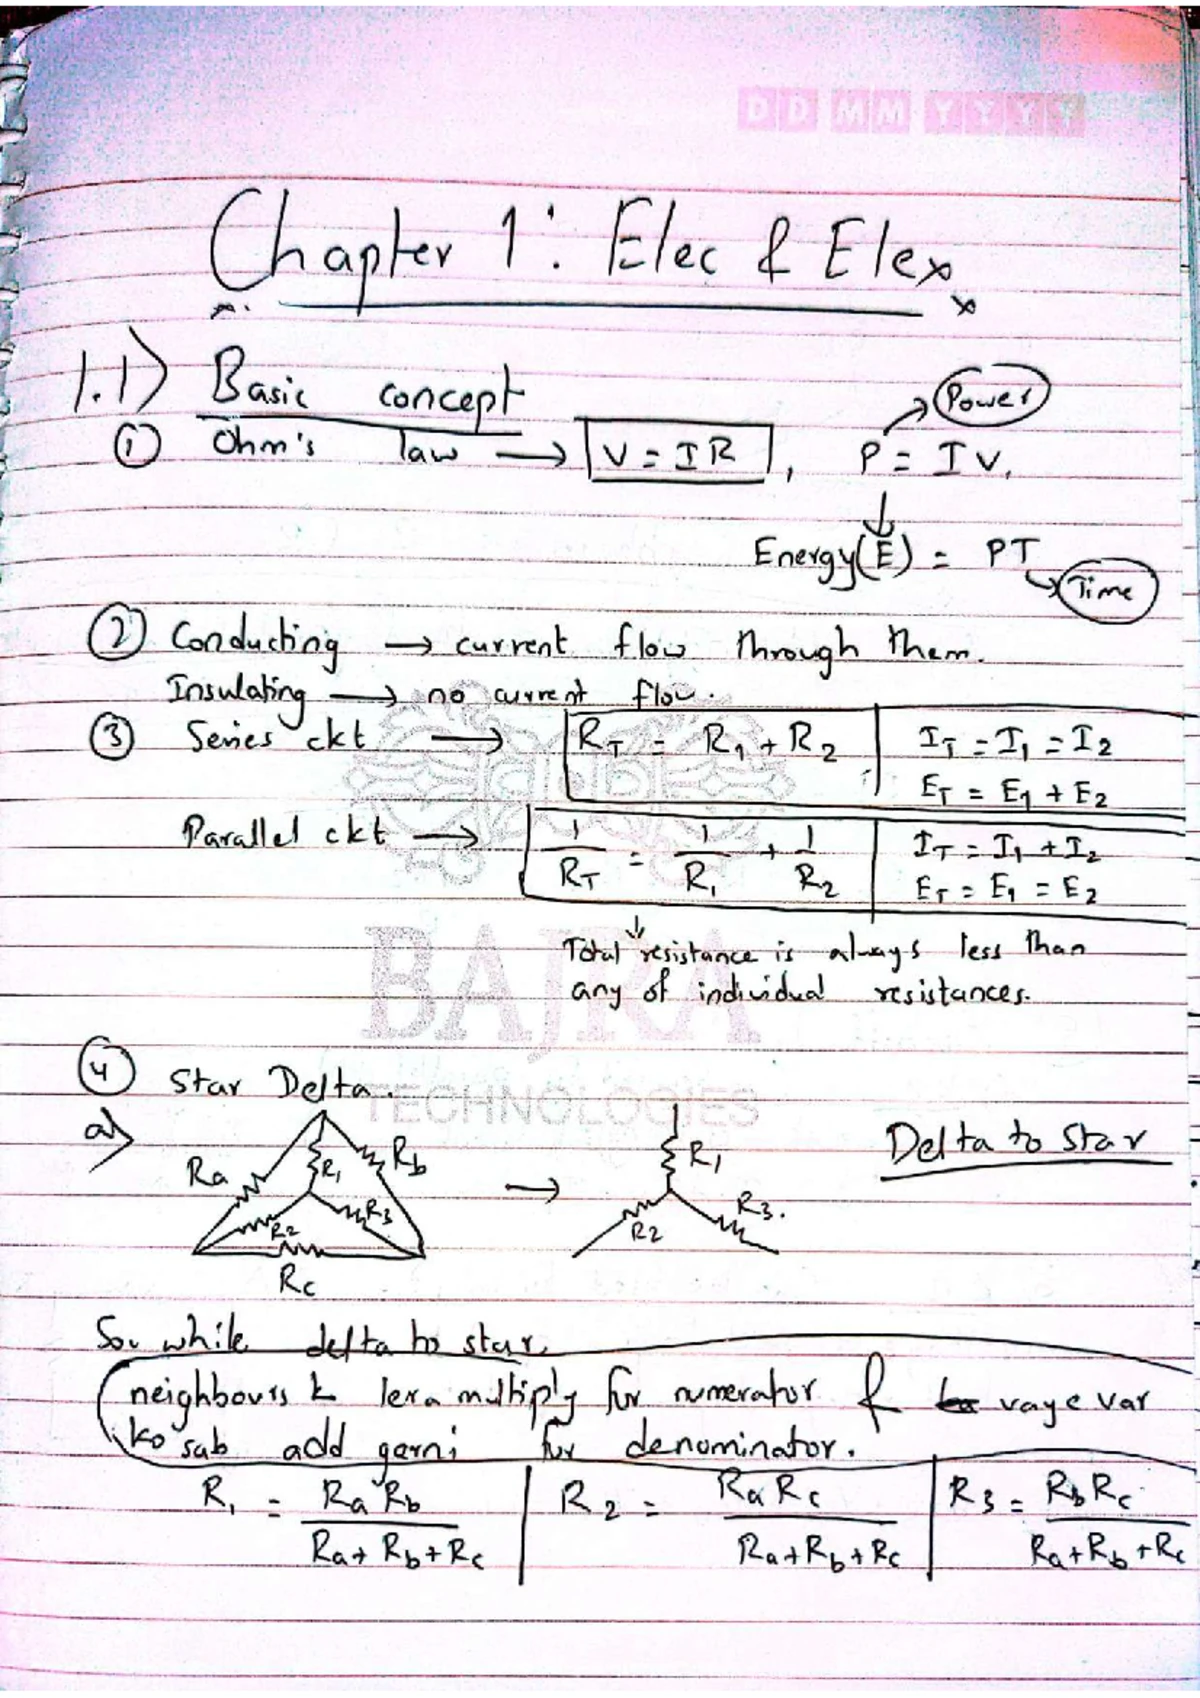 DD MM YYYY
Chapter 1: Elec & Elex
1.1) Basic concept
① Ohm's law → V = IR, P = IV,
Power
Energy(E) = PT
Time
② Conducting → current flow through them.
Insulating → no current flow.
③ Series ckt → R_T = R_1 + R_2 | I_T = I_1 = I_2
E_T = E_1 + E_2
Parallel ckt → 1/R_T = 1/R_1 + 1/R_2 | I_T = I_1 + I_2
E_T = E_1 = E_2
BAJRA
TECHNOLOGIES
↓
Total resistance is always less than
any of individual resistances.
④ Star Delta.
a) Delta to Star
Ra R1 Rb R2 R3 Rc → R1 R2 R3.
So, while delta to star,
neighbours k lera multiply for numerator & vaye var
ko sab add garni for denominator.
R_1 = RaRb/(Ra+Rb+Rc) | R_2 = RaRc/(Ra+Rb+Rc) | R_3 = RbRc/(Ra+Rb+Rc)